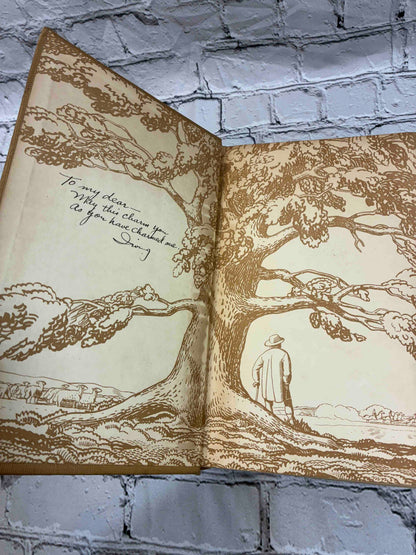 To my dear—
May this charm you
as you have charmed me
Irving